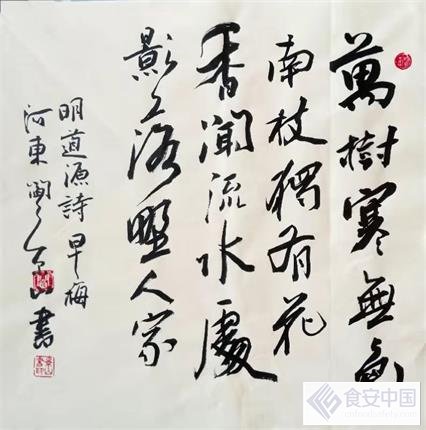 萬樹寒無色
南枝獨有花
香聞流水處
影落野人家
明道源詩早梅
河東 書
食安中国
cnfoodsafety.com